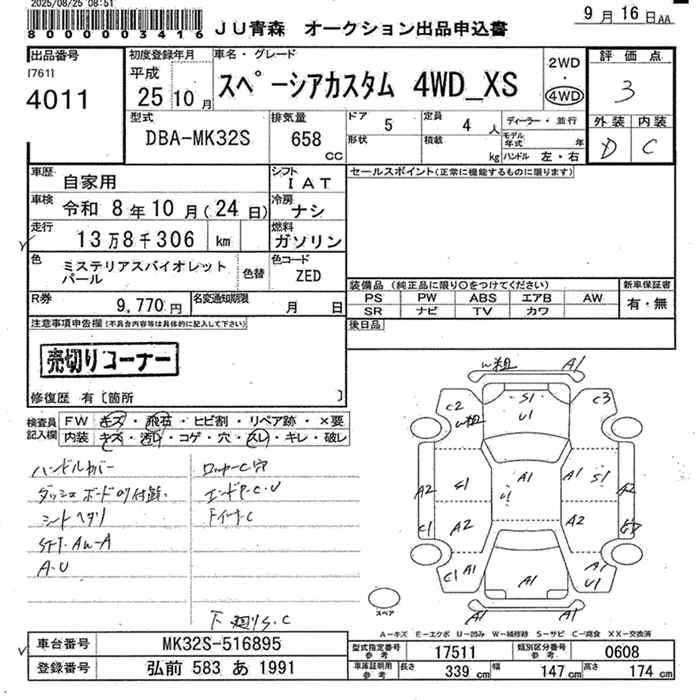 2025/08/25 08:51
8000003416
JU青森 オークション出品申込書
9月16日AA
出品番号
[761]
4011
初度登録年月
平成
25年10月
車名・グレード
スペーシアカスタム 4WD_XS
2WD
・
4WD
評価点
3
外装 内装
D C
型式
DBA-MK32S
排気量
658
CC
ドア 5
定員 4 人
形状
積載 kg
ディーラー・並行
モデル年式 年
ハンドル 左・右
車歴
自家用
シフト
IAT
車検
令和 8年10月(24日)
冷房
ナシ
走行
13万8千306 km
燃料
ガソリン
色
ミステリアスバイオレット
パール
色替
色コード
ZED
R券
9,770円
名変通知期限
月 日
セールスポイント(正常に機能するものに限ります)
装備品(純正品に限り○をつけてください)
PS PW ABS エアB AW
SR ナビ TV カワ
新車保証書
有・無
後日品
注意事項申告欄(不具合内容等は具体的に記入して下さい)
売切りコーナー
修復歴 有〔箇所 〕
検査員
記入欄
FW キズ・飛石・ヒビ割・リペア跡・×要
内装 キズ・汚レ・コゲ・穴・スレ・キレ・破レ
ハンドルカバー
ダッシュボードのり付着
シートヘタリ
A.U
下廻りS.C
W粗 A1
C2 W粗
S1
U1
C3
A2 S1 A1 S1 A2
U1
C1 A2 A2
C1 A1 A1 A1
U1
A1 A1
スペア
A-キズ E-エクボ U-凹み W-補修跡 S-サビ C-腐食 XX-交換済
車台番号
MK32S-516895
型式指定番号
参考
17511
類別区分番号
参考
0608
登録番号
弘前 583 あ 1991
車庫証明用
参考
長さ 339 cm
幅 147 cm
高さ 174 cm